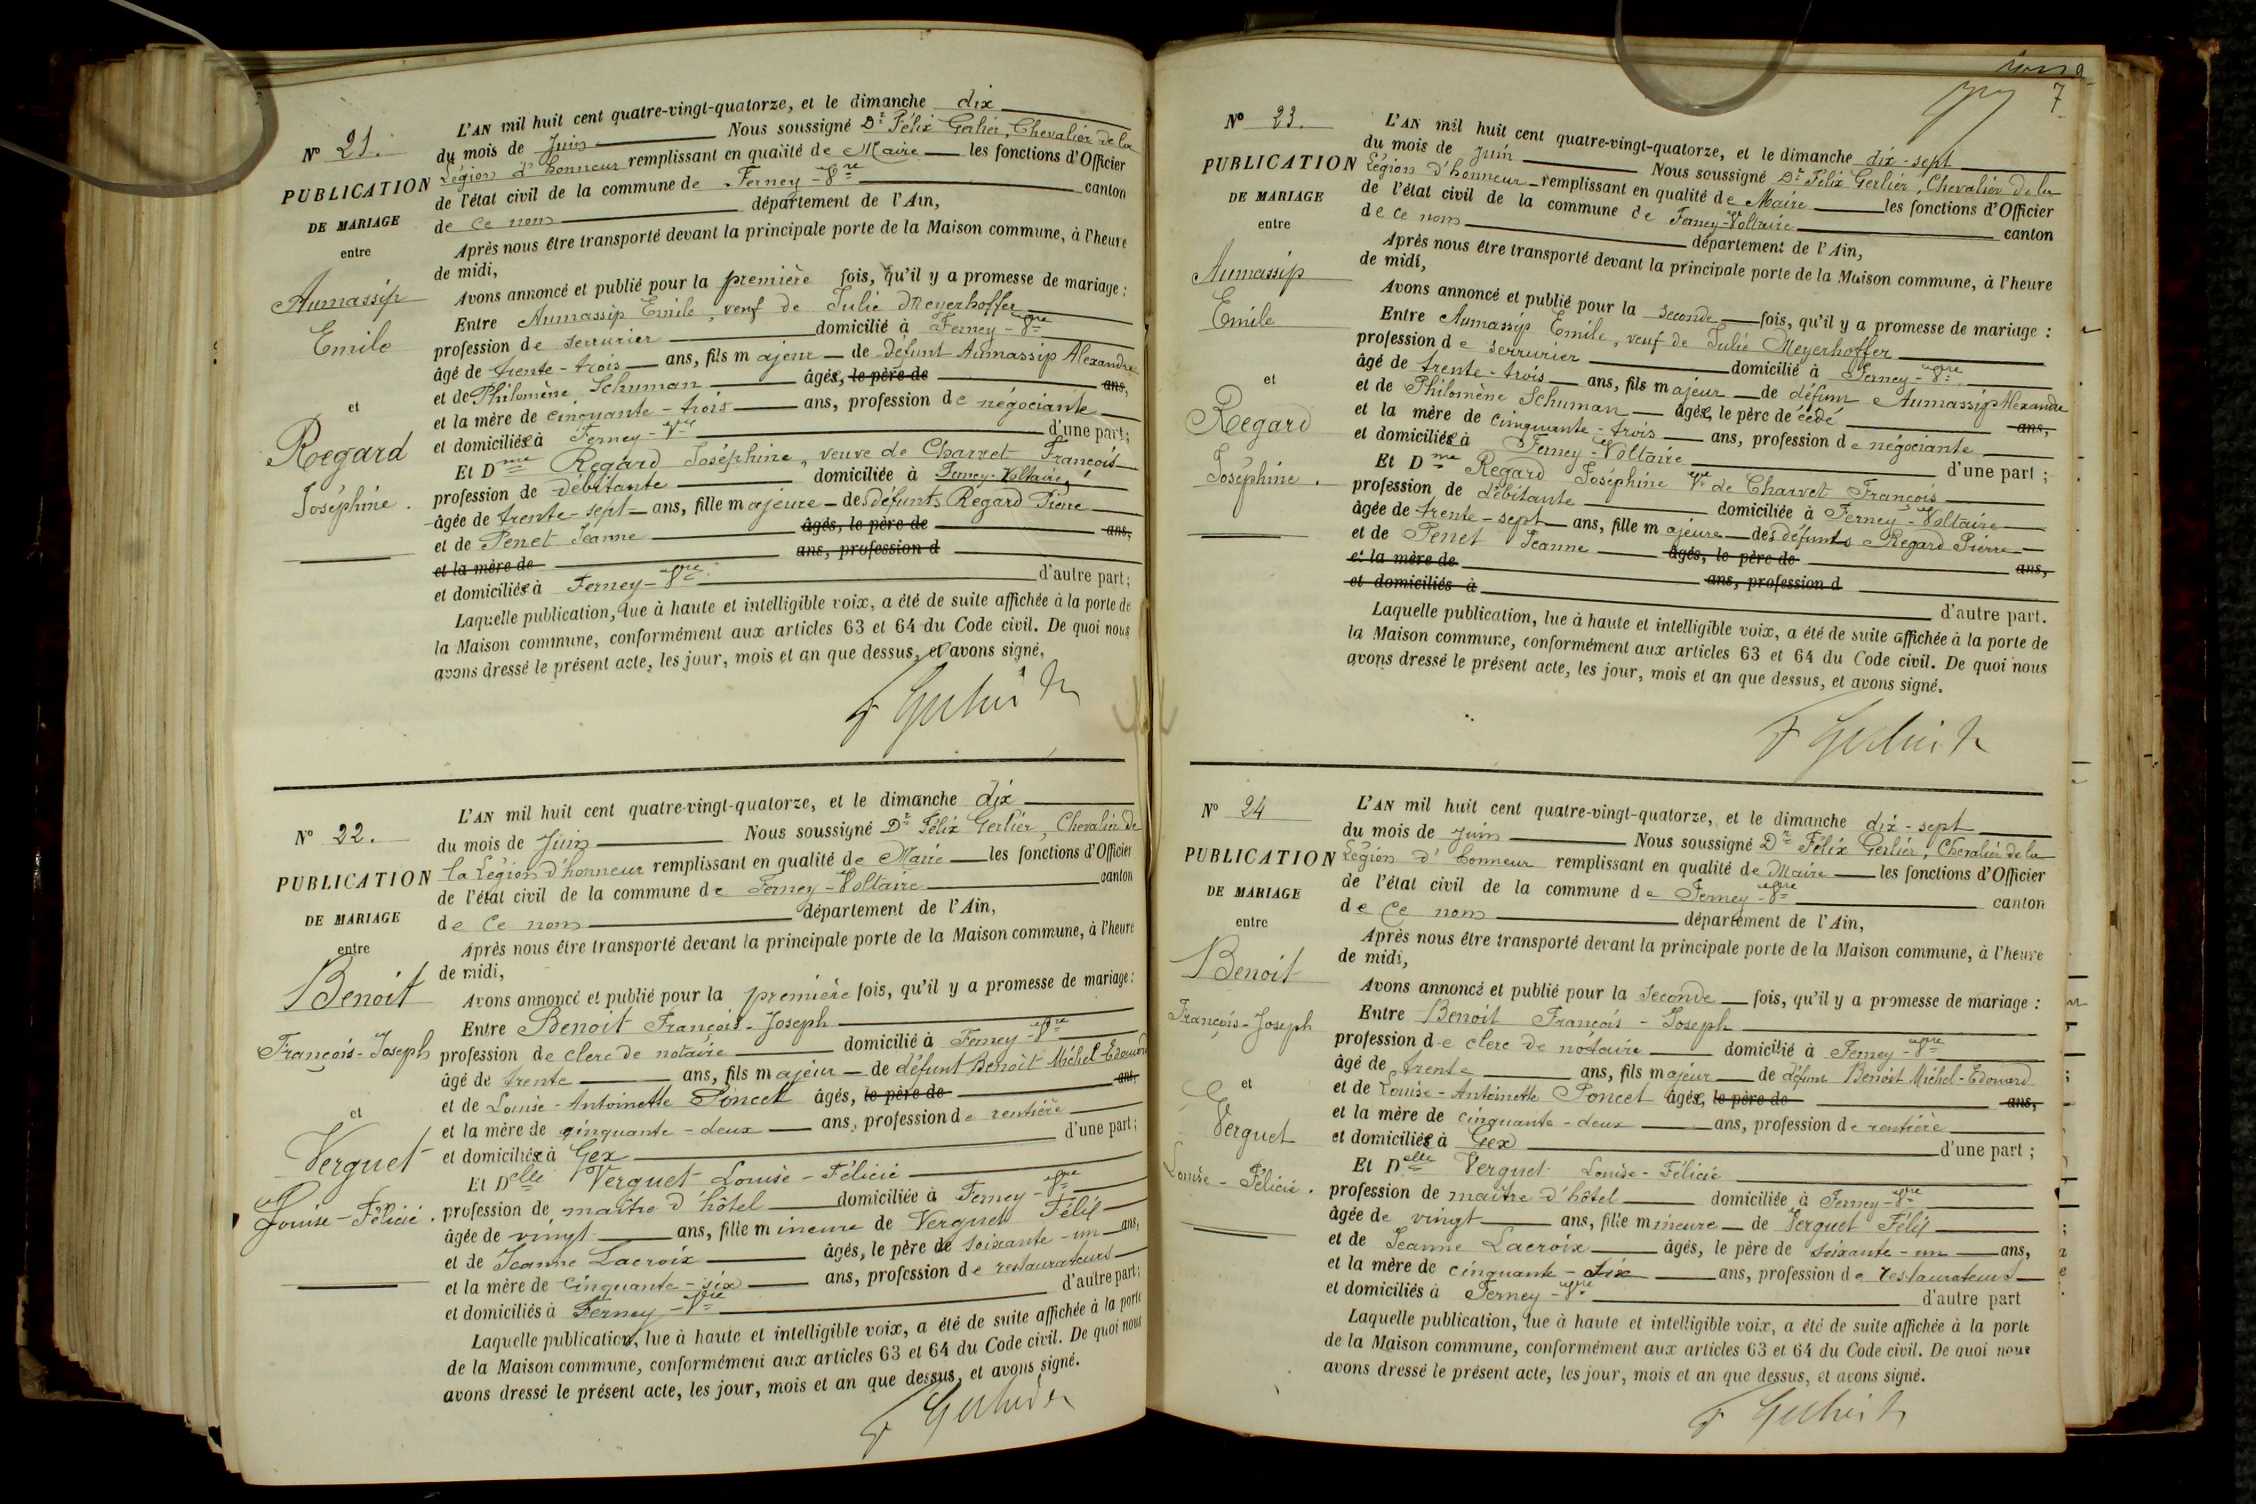 N° 21.
PUBLICATION
DE MARIAGE
entre
Aumassip
Emile
et
Regard
Joséphine.
L'AN mil huit cent quatre-vingt-quatorze, et le dimanche dix
du mois de Juin Nous soussigné Dr Félix Gerlier, Chevalier de la
Légion d'honneur remplissant en qualité de Maire les fonctions d'Officier
de l'état civil de la commune de Ferney-Vre canton
de ce nom département de l'Ain,
Après nous être transporté devant la principale porte de la Maison commune, à l'heure
de midi,
Avons annoncé et publié pour la première fois, qu'il y a promesse de mariage :
Entre Aumassip Emile, veuf de Julie Meyerhoffer
profession de serrurier domicilié à Ferney-Vre
âgé de trente-trois ans, fils majeur de défunt Aumassip Alexandre
et de Philomène Schuman âgés, le père de ans,
et la mère de cinquante-trois ans, profession de négociante
et domiciliée à Ferney-Vre d'une part;
Et Dme Regard Joséphine, veuve de Charvet François
profession de débitante domiciliée à Ferney-Voltaire
âgée de trente-sept ans, fille majeure des défunts Regard Pierre
et de Penet Jeanne âgés, le père de ans,
et la mère de ans, profession d
et domiciliés à Ferney-Vre d'autre part;
Laquelle publication, lue à haute et intelligible voix, a été de suite affichée à la porte de
la Maison commune, conformément aux articles 63 et 64 du Code civil. De quoi nous
avons dressé le présent acte, les jour, mois et an que dessus, et avons signé.
F Gerlier Dr
N° 22.
PUBLICATION
DE MARIAGE
entre
Benoit
François-Joseph
et
Verguet
Louise-Félicie.
L'AN mil huit cent quatre-vingt-quatorze, et le dimanche dix
du mois de Juin Nous soussigné Dr Félix Gerlier, Chevalier de
la Légion d'honneur remplissant en qualité de Maire les fonctions d'Officier
de l'état civil de la commune de Ferney-Voltaire canton
de ce nom département de l'Ain,
Après nous être transporté devant la principale porte de la Maison commune, à l'heure
de midi,
Avons annoncé et publié pour la première fois, qu'il y a promesse de mariage :
Entre Benoit François-Joseph
profession de clerc de notaire domicilié à Ferney-Vre
âgé de trente ans, fils majeur de défunt Benoit Michel-Edouard
et de Louise-Antoinette Poncet âgés, le père de ans,
et la mère de cinquante-deux ans, profession de rentière
et domiciliée à Gex d'une part;
Et Delle Verguet Louise-Félicie
profession de maître d'hôtel domiciliée à Ferney-Vre
âgée de vingt ans, fille mineure de Verguet Félix
et de Jeanne Lacroix âgés, le père de soixante-un ans,
et la mère de cinquante-six ans, profession de restaurateurs
et domiciliés à Ferney-Vre d'autre part;
Laquelle publication, lue à haute et intelligible voix, a été de suite affichée à la porte
de la Maison commune, conformément aux articles 63 et 64 du Code civil. De quoi nous
avons dressé le présent acte, les jour, mois et an que dessus, et avons signé.
F Gerlier Dr
7
N° 23.
PUBLICATION
DE MARIAGE
entre
Aumassip
Emile
et
Regard
Joséphine.
L'AN mil huit cent quatre-vingt-quatorze, et le dimanche dix-sept
du mois de Juin Nous soussigné Dr Félix Gerlier, Chevalier de la
Légion d'honneur remplissant en qualité de Maire les fonctions d'Officier
de l'état civil de la commune de Ferney-Voltaire canton
de ce nom département de l'Ain,
Après nous être transporté devant la principale porte de la Maison commune, à l'heure
de midi,
Avons annoncé et publié pour la seconde fois, qu'il y a promesse de mariage :
Entre Aumassip Emile, veuf de Julie Meyerhoffer
profession de serrurier domicilié à Ferney-Vre
âgé de trente-trois ans, fils majeur de défunt Aumassip Alexandre
et de Philomène Schuman âgés, le père décédé ans,
et la mère de cinquante-trois ans, profession de négociante
et domiciliée à Ferney-Voltaire d'une part;
Et Dme Regard Joséphine Vve de Charvet François
profession de débitante domiciliée à Ferney-Voltaire
âgée de trente-sept ans, fille majeure des défunts Regard Pierre
et de Penet Jeanne âgés, le père de ans,
et la mère de ans, profession d
et domiciliés à d'autre part.
Laquelle publication, lue à haute et intelligible voix, a été de suite affichée à la porte de
la Maison commune, conformément aux articles 63 et 64 du Code civil. De quoi nous
avons dressé le présent acte, les jour, mois et an que dessus, et avons signé.
F Gerlier Dr
N° 24
PUBLICATION
DE MARIAGE
entre
Benoit
François-Joseph
et
Verguet
Louise-Félicie.
L'AN mil huit cent quatre-vingt-quatorze, et le dimanche dix-sept
du mois de Juin Nous soussigné Dr Félix Gerlier, Chevalier de la
Légion d'honneur remplissant en qualité de Maire les fonctions d'Officier
de l'état civil de la commune de Ferney-Vre canton
de ce nom département de l'Ain,
Après nous être transporté devant la principale porte de la Maison commune, à l'heure
de midi,
Avons annoncé et publié pour la seconde fois, qu'il y a promesse de mariage :
Entre Benoit François-Joseph
profession de clerc de notaire domicilié à Ferney-Vre
âgé de trente ans, fils majeur de défunt Benoit Michel-Edouard
et de Louise-Antoinette Poncet âgés, le père de ans,
et la mère de cinquante-deux ans, profession de rentière
et domiciliée à Gex d'une part;
Et Delle Verguet Louise-Félicie
profession de maître d'hôtel domiciliée à Ferney-Vre
âgée de vingt ans, fille mineure de Verguet Félix
et de Jeanne Lacroix âgés, le père de soixante-un ans,
et la mère de cinquante-six ans, profession de restaurateurs
et domiciliés à Ferney-Vre d'autre part
Laquelle publication, lue à haute et intelligible voix, a été de suite affichée à la porte
de la Maison commune, conformément aux articles 63 et 64 du Code civil. De quoi nous
avons dressé le présent acte, les jour, mois et an que dessus, et avons signé.
F Gerlier Dr